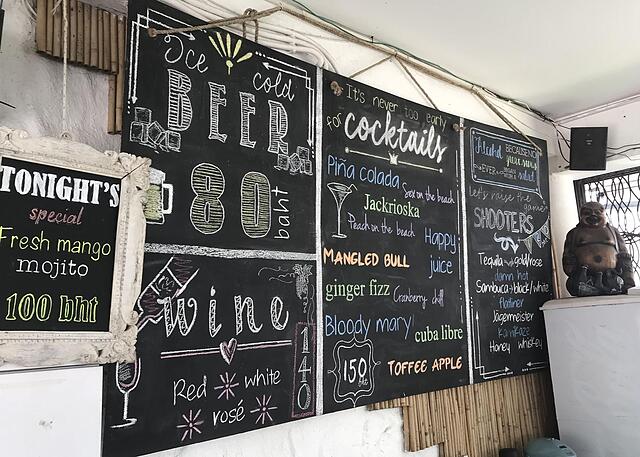 TONIGHT'S
special
Fresh mango
mojito
100 bht
Ice cold
BEER
80 baht
wine
Red white
rosé
140
It's never too early
for cocktails
Piña colada
Sex on the beach
Jackrioska
Peach on the beach
Happy juice
MANGLED BULL
ginger fizz
Cranberry chill
Bloody mary
cuba libre
150
TOFFEE APPLE
Alcohol BECAUSE NO
great story
EVER
salad
Let's raise the game
SHOOTERS
Tequila gold/rose
damn hot
Sambuca black/white
flatliner
Jagermeister
Kamikaze
Honey whiskey